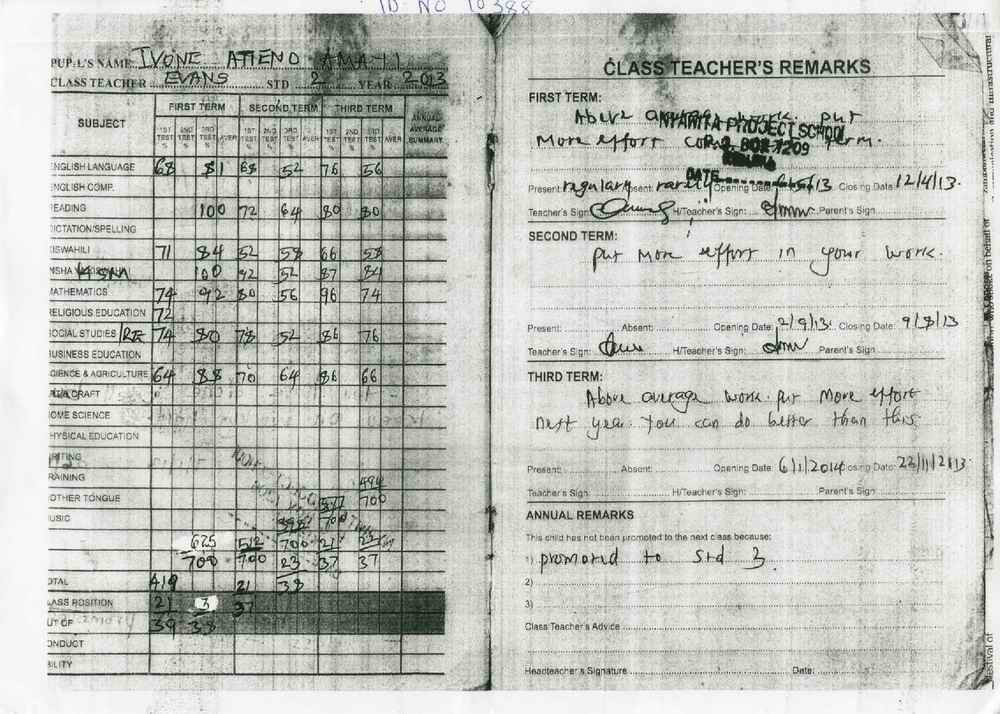 ID NO 10388
PUPIL'S NAME: IVONE ATIENO AMAYI
CLASS TEACHER EVANS STD 2 YEAR 2013
SUBJECT FIRST TERM SECOND TERM THIRD TERM ANNUAL AVERAGE SUMMARY
1ST TEST % 2ND TEST % 3RD TEST % AVER 1ST TEST % 2ND TEST % 3RD TEST % AVER 1ST TEST % 2ND TEST % 3RD TEST % AVER
ENGLISH LANGUAGE 68 81 68 52 76 56
ENGLISH COMP.
EADING 100 72 64 80 80
ICTATION/SPELLING
ISWAHILI 71 84 52 58 66 58
NSHA 100 92 52 87 84
ATHEMATICS 74 92 80 56 96 74
ELIGIOUS EDUCATION 72
OCIAL STUDIES / RE 74 80 78 52 86 76
USINESS EDUCATION
CIENCE & AGRICULTURE 64 88 70 64 86 66
CRAFT
OME SCIENCE
HYSICAL EDUCATION
RITING
RAINING 494
OTHER TONGUE 577 700
USIC 398 700
625 512 700 21 23
700 700 23 37 37
OTAL 419 21 38
LASS POSITION 21 3 37
UT OF 39 38
ONDUCT
BILITY
CLASS TEACHER'S REMARKS
FIRST TERM:
Above average work. put
More effort term.
NYAMITA PROJECT SCHOOL
BOX 7209
DATE
Present: regularly Absent: rarely Opening Date: 6/5/13 Closing Date: 12/4/13.
Teacher's Sign: H/Teacher's Sign: Parent's Sign:
SECOND TERM:
put more effort in your work.
Present: Absent: Opening Date: 2/9/13. Closing Date: 9/8/13
Teacher's Sign: H/Teacher's Sign: Parent's Sign:
THIRD TERM:
Above average work. put More effort
next year. You can do better than this.
Present: Absent: Opening Date: 6/1/2014 Closing Date: 22/11/2013.
Teacher's Sign H/Teacher's Sign: Parent's Sign
ANNUAL REMARKS
This child has not been promoted to the next class because:
1) promoted to Std 3
2)
3)
Class Teacher's Advice
Headteacher's Signature Date: